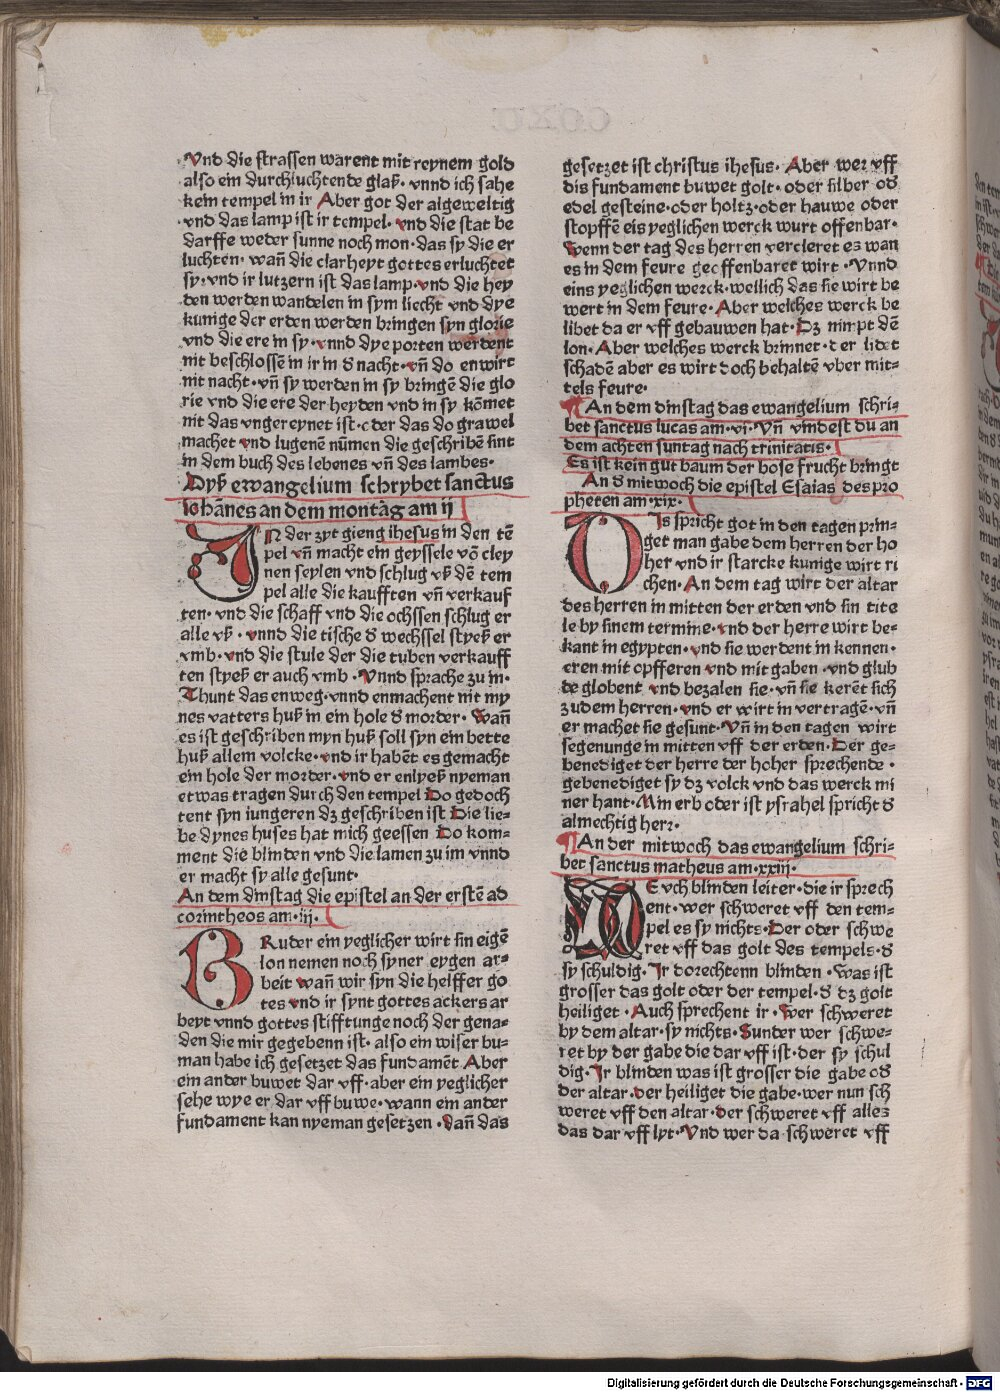 Vnd die strassen warent mit reynem gold
also ein durchluchtende glaß· vnnd ich sahe
kein tempel in ir Aber got der algeweltig
vnd das lamp ist ir tempel· vnd die stat be
darffe weder sunne noch mon· das sy die er
luchten· wañ die clarheyt gottes erluchtet
sy· vnd ir lutzern ist das lamp· vnd die hey
den werden wandelen in sym liecht vnd dye
kunige der erden werden bringen syn glorie
vnd die ere in sy· vnnd dye porten werdent
nit beschlossē in ir in d nacht· vñ do en wirt
nit nacht· vñ sy werden in sy bringē die glo
rie vnd die ere der heyden vnd in sy kōmet
nit das vngereynet ist· oder das do grawel
machet vnd lugenē nūmen die geschribē sint
in dem buch des lebenes vñ des lambes·
Dyß ewangelium schrybet sanctus
iohānes an dem montag am ij
IN der zyt gieng ihesus in den tē
pel vñ macht ein geyssele vō cley
nen seylen vnd schlug vß dē tem
pel alle die kaufften vñ verkauf
ten· vnd die schaff vnd die ochssen schlug er
alle vß· vnnd die tische d wechssel styeß er
vmb· vnd die stule der die tuben verkauff
ten styeß er auch vmb· Vnnd sprache zu in·
Thunt das enweg· vnnd enmachent nit my
nes vatters huß in ein hole d morder· Wañ
es ist geschriben myn huß soll syn ein bette
huß allem volcke· vnd ir habēt es gemacht
ein hole der morder· vnd er enlyeß nyeman
etwas tragen durch den tempel Do gedoch
tent syn iungeren dz geschriben ist Die lie-
be dynes huses hat mich geessen Do kom-
ment die blinden vnd die lamen zu im vnnd
er macht sy alle gesunt·
An dem dinstag die epistel an der erstē ad
corintheos am· iij·
BRuder ein yeglicher wirt sin eigē
lon nemen noch syner eygen ar-
beit wañ wir syn die helffer go
tes vnd ir synt gottes ackers ar
beyt vnnd gottes stifftunge noch der gena-
den die mir gegebenn ist· also ein wiser bu-
man habe ich gesetzet das fundamēt Aber
ein ander buwet dar vff· aber ein yeglicher
sehe wye er dar vff buwe· wann ein ander
fundament kan nyeman gesetzen· Dañ das
gesetzet ist christus ihesus· Aber wer vff
dis fundament buwet golt· oder silber od
edel gesteine· oder holtz· oder hauwe oder
stopffē eis yeglichen werck wurt offenbar·
Wenn der tag des herren vercleret es wan
es in dem feure geoffenbaret wirt· Vnnd
eins yeglichen werck· wellich das sie wirt be
wert in dem feure· Aber welches werck be
libet da er vff gebauwen hat· Dz nimpt dē
lon· Aber welches werck brinnet· der lidet
schadē aber es wirt doch behaltē vber mit-
tels feure·
¶ An dem dinstag das ewangelium schri-
bet sanctus lucas am· vi· Vñ vindest du an
dem achten suntag nach trinitatis·
Es ist kein gut baum der bose frucht bringt
An d mitwoch die epistel Esaias des pro
pheten am· xix·
DIs spricht got in den tagen prin-
get man gabe dem herren der ho
her vnd ir starcke kunige wirt ri
chen· An dem tag wirt der altar
des herren in mitten der erden vnd sin title
le by sinem termine· vnd der herre wirt be-
kant in egypten· vnd sie werdent in kennen·
eren mit opfferen vnd mit gaben· vnd glub
de globent vnd bezalen sie· vñ sie kerēt sich
zu dem herren· vnd er wirt in vertragē· vñ
er machet sie gesunt· Vñ in den tagen wirt
segenunge in mitten vff der erden· Der ge-
benediget der herre der hoher sprechende·
gebenediget sy dz volck vnd das werck mi
ner hant· Min erb oder ist ysrahel spricht d
almechtig herr·
¶ An der mitwoch das ewangelium schri-
bet sanctus matheus am· xxiij·
WE vch blinden leiter· die ir sprech
ent· wer schweret vff den tem-
pel es sy nichts· Der oder schwe
ret vff das golt des tempels· d
sy schuldig· Ir dorechtenn blinden· Was ist
grosser das golt oder der tempel· d dz golt
heiliget· Auch sprechent ir· Wer schweret
by dem altar· sy nichts· Sunder wer schwe-
ret by der gabe die dar vff ist· der sy schul
dig· Ir blinden was ist grosser die gabe od
der altar· der heiliget die gabe· wer nun sch
weret vff den altar· der schweret vff alles
das dar vff lyt· Vnd wer da schweret vff
Digitalisierung gefördert durch die Deutsche Forschungsgemeinschaft - DFG